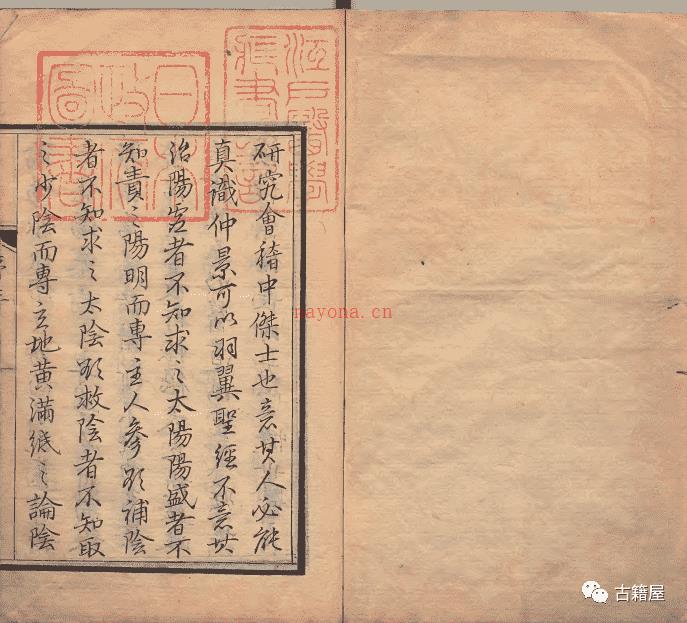 江戶醫學
藏書之記
研究會稽中傑士也意其人必能
真識仲景可以羽翼聖經不意其
治陽者不知求之太陽陽盛者不
知責之陽明而專主人參欲補陰
者不知求之太陰欲救陰者不知取
之少陰而專主地黃滿紙之論陰
nayona.cn
古籍屋